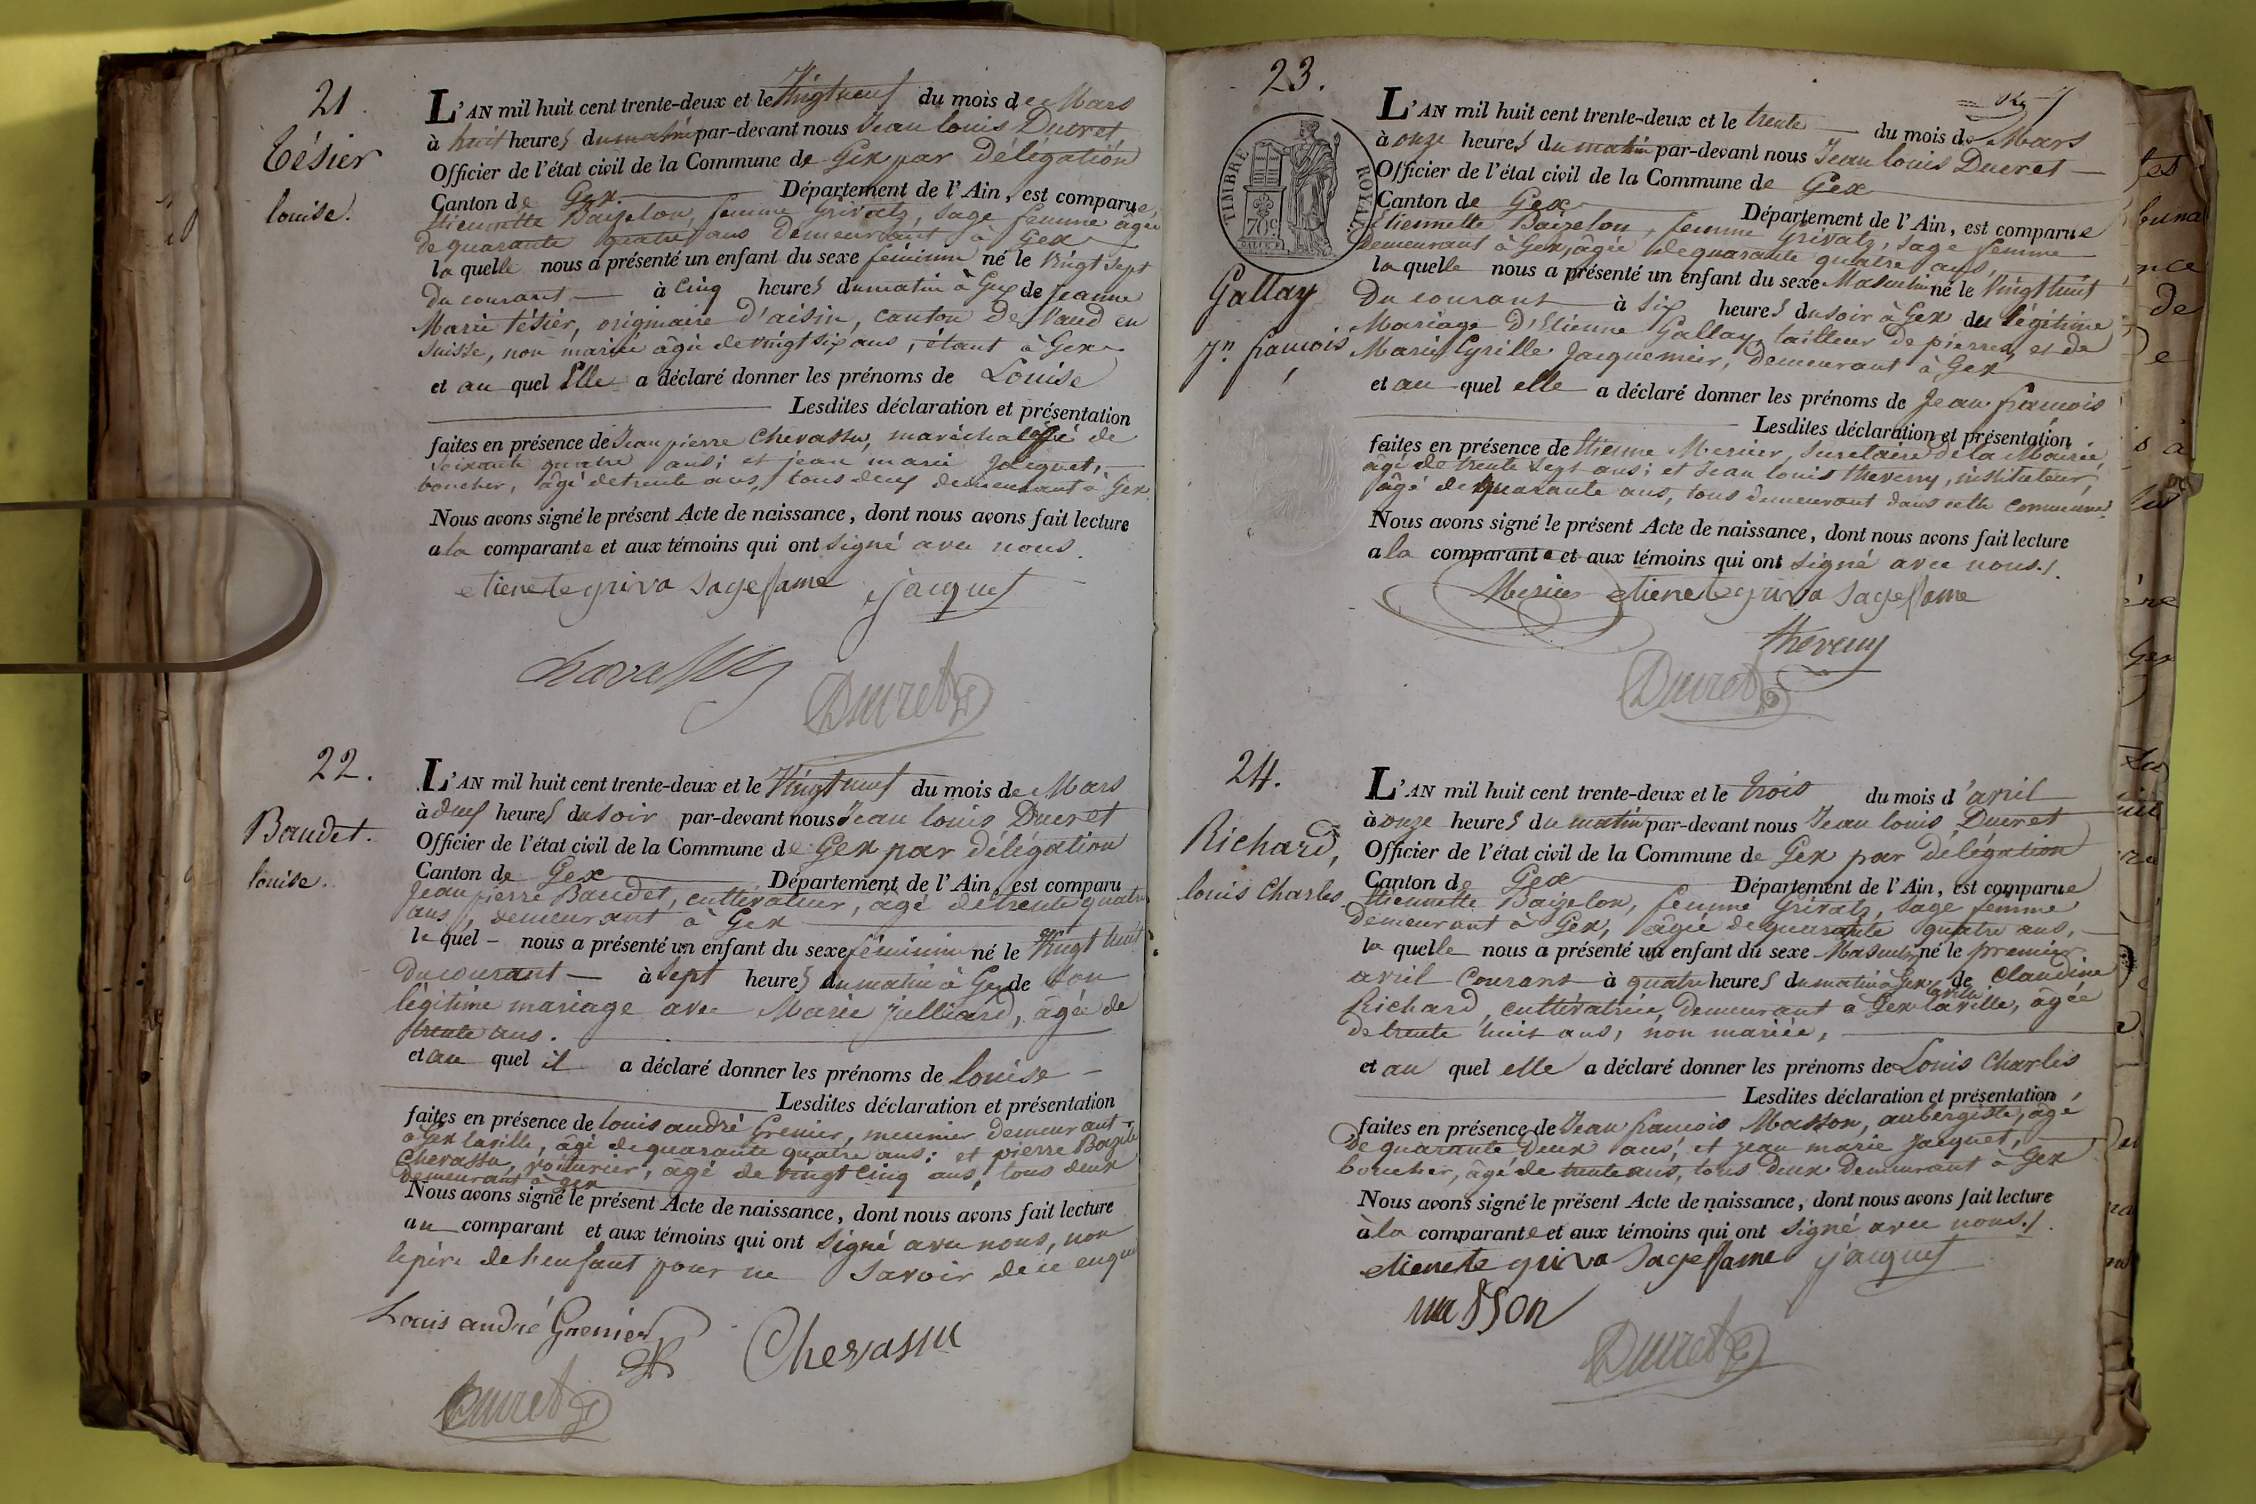 21.
Tésier
louise.
L'AN mil huit cent trente-deux et le Vingt neuf du mois de Mars
à huit heures du matin par-devant nous Jean louis Ducret
Officier de l'état civil de la Commune de Gex par délégation
Canton de Gex. Département de l'Ain, est comparue,
Etiennette Baizelon, femme Grivatz, sage femme âgée
de quarante quatre ans demeurant à Gex
la quelle nous a présenté un enfant du sexe féminin né le Vingt sept
du courant à Cinq heures du matin à Gex de Jeanne
Marie tésier, originaire d'aisin, canton de Vaud en
Suisse, non mariée âgée de vingt six ans, étant à Gex
et au quel Elle a déclaré donner les prénoms de Louise
Lesdites déclaration et présentation
faites en présence de Jean pierre Chevassu, maréchal âgé de
soixante quatre ans; et jean marie Jacquet,
boucher, âgé de trente ans, tous deux demeurant à Gex.
Nous avons signé le présent Acte de naissance, dont nous avons fait lecture
a la comparante et aux témoins qui ont signé avec nous.
etienete griva sagefame jacquet
chavassu
Ducret
22.
Baudet.
louise.
L'AN mil huit cent trente-deux et le Vingt neuf du mois de Mars
à deux heures du soir par-devant nous Jean louis Ducret
Officier de l'état civil de la Commune de Gex par délégation
Canton de Gex Département de l'Ain, est comparu
Jean pierre Baudet, cultivateur, âgé de trente quatre
ans, demeurant à Gex
le quel nous a présenté un enfant du sexe féminin né le Vingt huit
du courant à sept heures du matin à Gex de son
légitime mariage avec Marie Julliard, âgée de
trente ans.
et au quel il a déclaré donner les prénoms de louise
Lesdites déclaration et présentation
faites en présence de louis andré Grenier, meunier demeurant
à Gex laville, âgé de quarante quatre ans; et pierre Bazile
Chevassu, voiturier, âgé de vingt cinq ans, tous deux
demeurant à Gex
Nous avons signé le présent Acte de naissance, dont nous avons fait lecture
au comparant et aux témoins qui ont signé avec nous, non
le père de l'enfant pour ne savoir de ce enquis
Louis andré Grenier
Chevassu
Ducret
23.
TIMBRE ROYAL
70c
Gallay
Jn. françois
L'AN mil huit cent trente-deux et le trente du mois de Mars
à onze heures du matin par-devant nous Jean louis Ducret
Officier de l'état civil de la Commune de Gex
Canton de Gex Département de l'Ain, est comparue
Etiennette Baizelon, femme Grivatz, sage femme
demeurant à Gex, âgée de quarante quatre ans,
la quelle nous a présenté un enfant du sexe Masculin né le Vingt huit
du courant à six heures du soir à Gex du légitime
Mariage d'Etienne Gallay, tailleur de pierres, et de
Marie Cyrille Jacquemier, demeurant à Gex
et au quel elle a déclaré donner les prénoms de Jean françois
Lesdites déclaration et présentation
faites en présence de Etienne Mercier, Secretaire de la Mairie,
âgé de trente sept ans; et Jean louis theveny, instituteur,
âgé de quarante ans, tous demeurant dans cette commune.
Nous avons signé le présent Acte de naissance, dont nous avons fait lecture
a la comparante et aux témoins qui ont signé avec nous./.
Mercier etienete griva sagefame
theveny
Ducret
24.
Richard,
louis Charles
L'AN mil huit cent trente-deux et le trois du mois d'avril
à onze heures du matin par-devant nous Jean louis Ducret
Officier de l'état civil de la Commune de Gex par délégation
Canton de Gex Département de l'Ain, est comparue
Etiennette Baizelon, femme Grivatz, sage femme
demeurant à Gex, âgée de quarante quatre ans,
la quelle nous a présenté un enfant du sexe Masculin né le premier
avril courant à quatre heures du matin à Gex laville de Claudine
Richard, cultivatrice, demeurant à Gex laville, âgée
de trente huit ans, non mariée,
et au quel elle a déclaré donner les prénoms de Louis Charles
Lesdites déclaration et présentation
faites en présence de Jean françois Masson, aubergiste, âgé
de quarante deux ans; et jean marie jacquet,
boucher, âgé de trente ans, tous deux demeurant à Gex
Nous avons signé le présent Acte de naissance, dont nous avons fait lecture
à la comparante et aux témoins qui ont signé avec nous./.
etienete griva sagefame jacquet
masson
Ducret